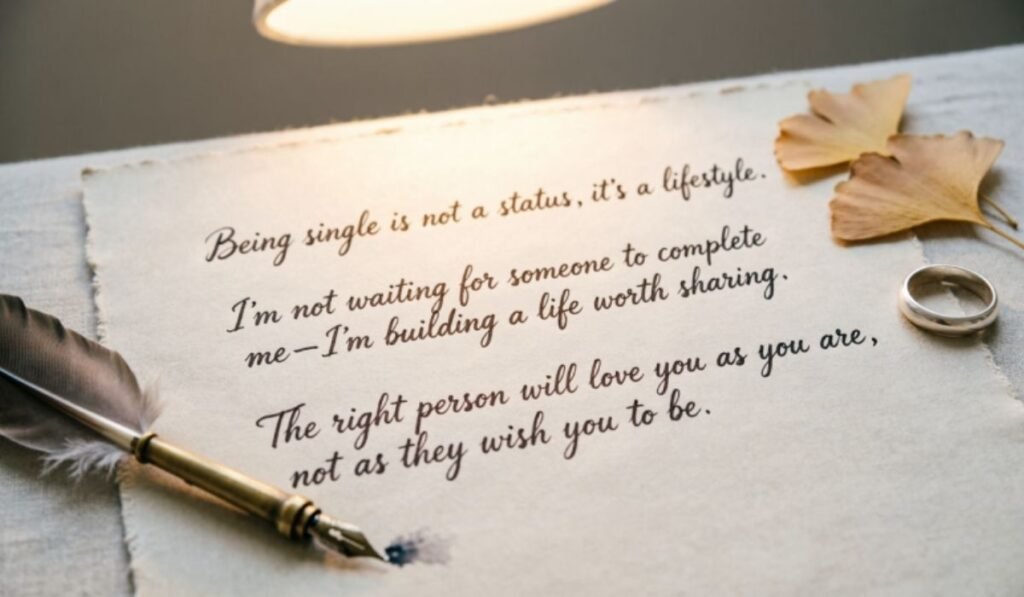 Being single is not a status, it's a lifestyle.
I'm not waiting for someone to complete
me—I'm building a life worth sharing.
The right person will love you as you are,
not as they wish you to be.